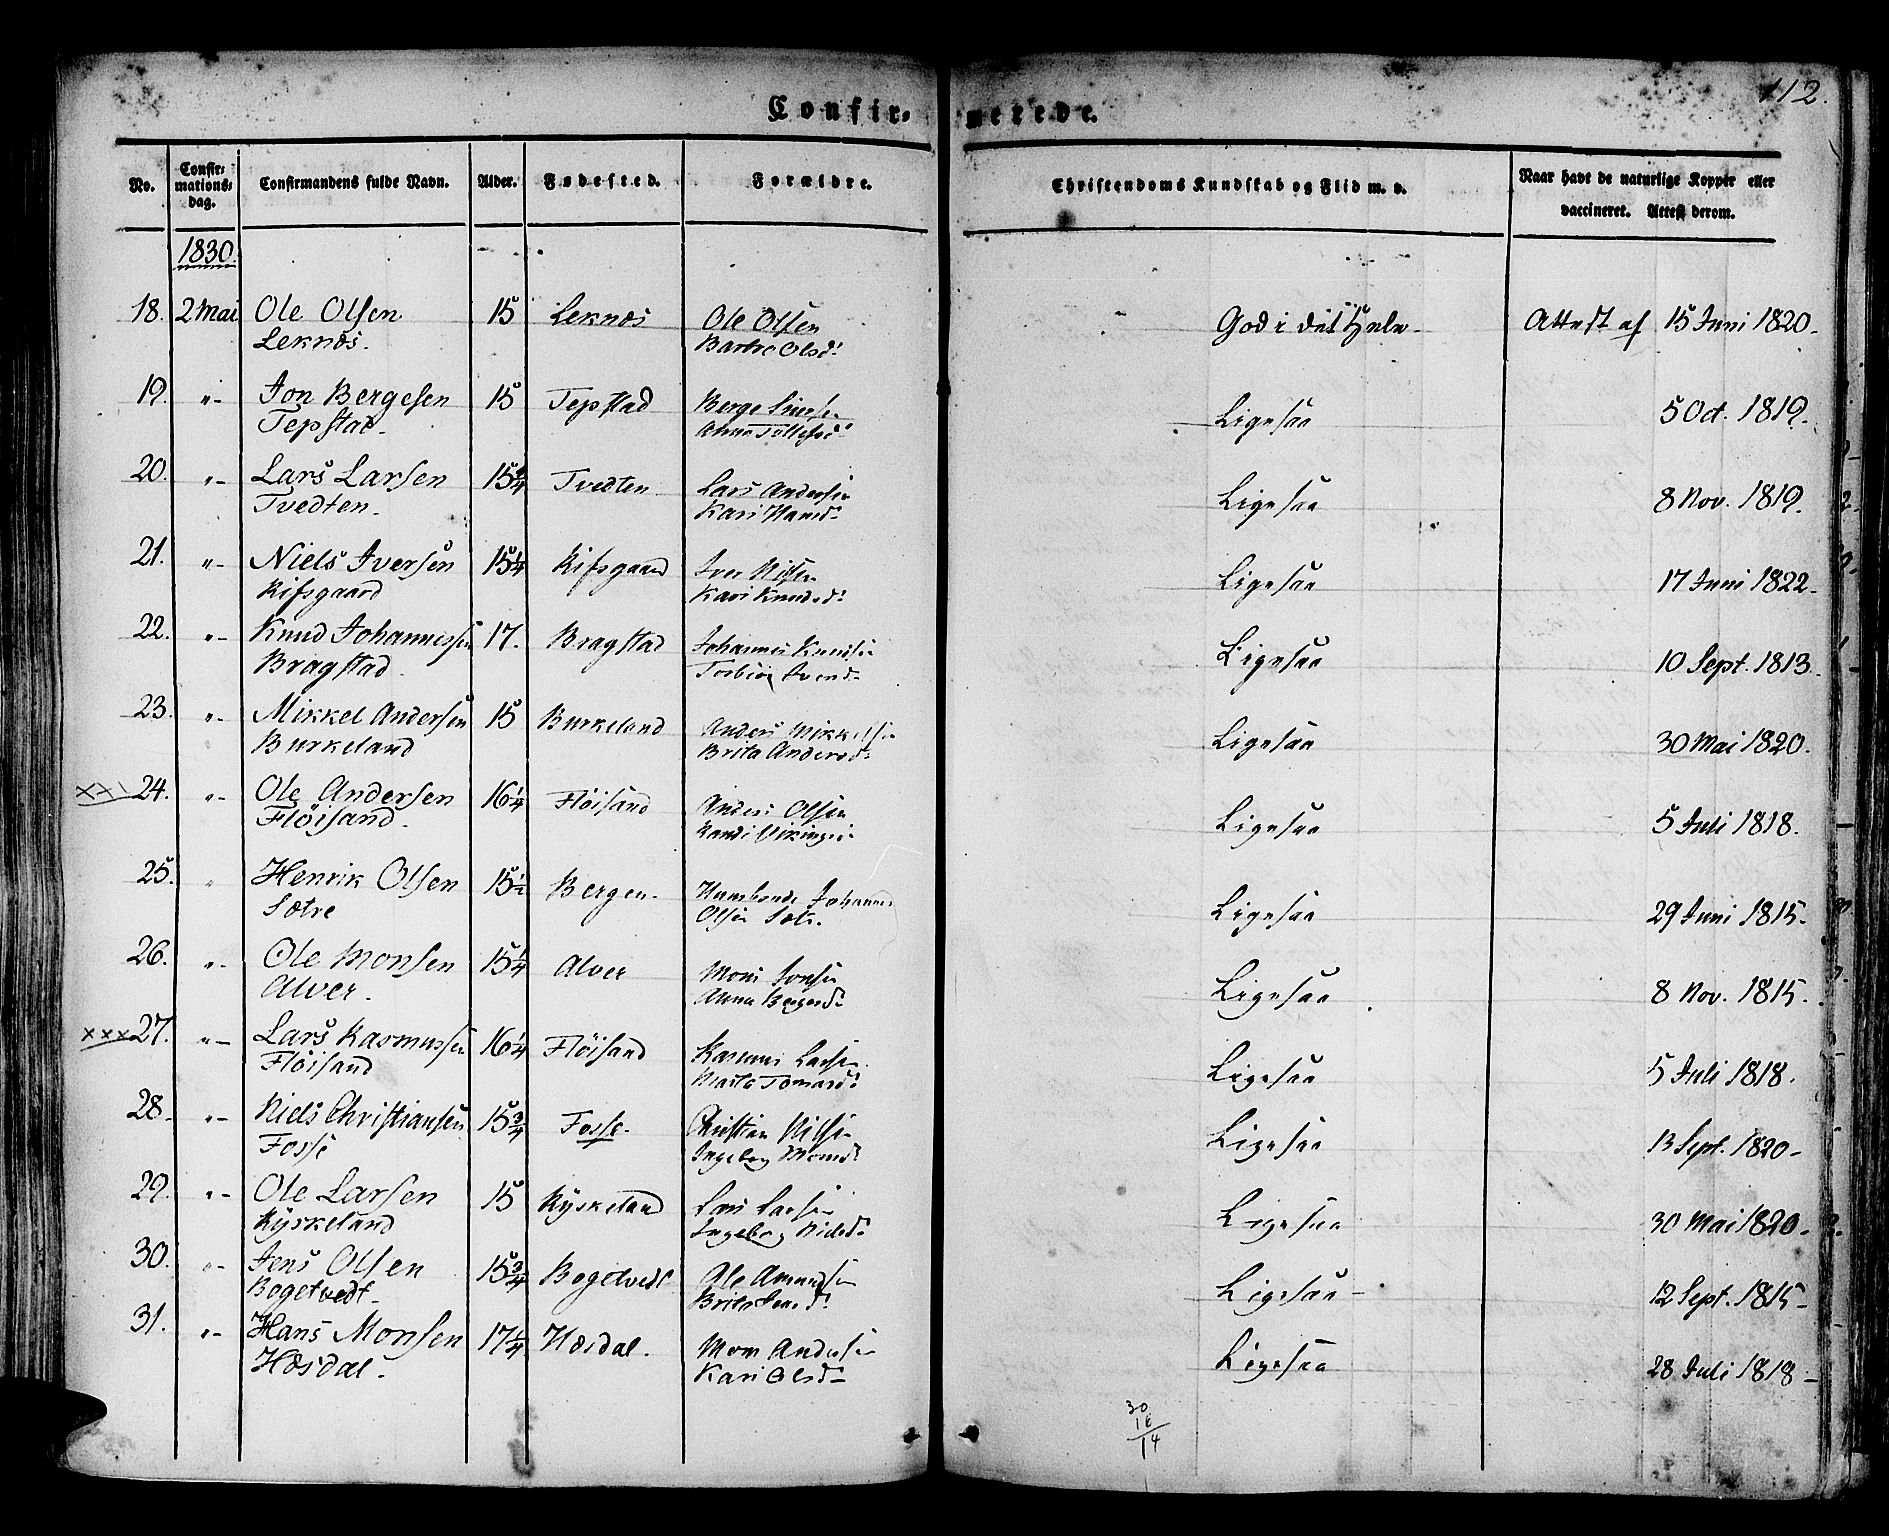 112.
Confirmerede.
No. Confirmations: dag. Confirmandens fulde Navn. Alder. Fødested. Forældre. Christendoms Kundskab og Flid m. v. Naar havt de naturlige Kopper eller vaccineret. Attest derom.
1830.
18. 2 Mai Ole Olsen 15 Leknæs Ole Olsen God i det Hele Attest af 15 Juni 1820.
Leknæs. Barbro Olsd:
19. "- Jon Bergesen 15 Tepstad Berge Ligesaa 5 Oct. 1819.
Tepstad. Anna
20. "- Lars Larsen 15 3/4 Tvedten Lars Andersen Ligesaa 8 Nov. 1819.
Tvedten. Kari Hansd:
21. "- Niels Iversen 15 1/4 Rifsgaard Iver Nilsen Ligesaa 17 Juni 1822.
Rifsgaard Kari Knudsd:
22. "- Knud Johannessen 17. Bragstad Johannes Knudsen Ligesaa 10 Sept. 1813.
Bragstad.
23. "- Mikkel Andersen 15 Burkeland Anders Mikkelsen Ligesaa 30 Mai 1820.
Burkeland Brita Andersd:
xx 24. "- Ole Andersen 16 1/4 Flöisand Anders Olsen Ligesaa 5 Juli 1818.
Flöisand.
25. " Henrik Olsen 15 1/2 Bergen. Huusbonde Johannes Ligesaa 29 Juni 1815.
Sætre Olsen Sætr.
26. "- Ole Monsen 15 1/4 Alver Mons Ligesaa 8 Nov. 1815.
Alver. Anna Bergesd:
xxx 27. "- Lars Rasmussen 16 1/4 Flöisand Rasmus Larsen Ligesaa 5 Juli 1818.
Flöisand
28. "- Niels Christiansen 15 3/4 Fosse. Christian Nilsen Ligesaa 13 Sept. 1820-
Fosse Ingeborg Monsd:
29. "- Ole Larsen 15 Ryskeland Lars Larsen Ligesaa 30 Mai 1820.
Ryskeland Ingeborg Nielsd:
30. "- Jens Olsen 15 3/4 Bogetvedt Ole Amundsen Ligesaa- 12 Sept. 1815-
Bogetvedt. Brita Jensd:
31. "- Hans Monsen 17 1/4 Hæsdal. Mons Andersen Ligesaa 28 Juli 1818-
Hæsdal. Kari Olsd-
30
16
14